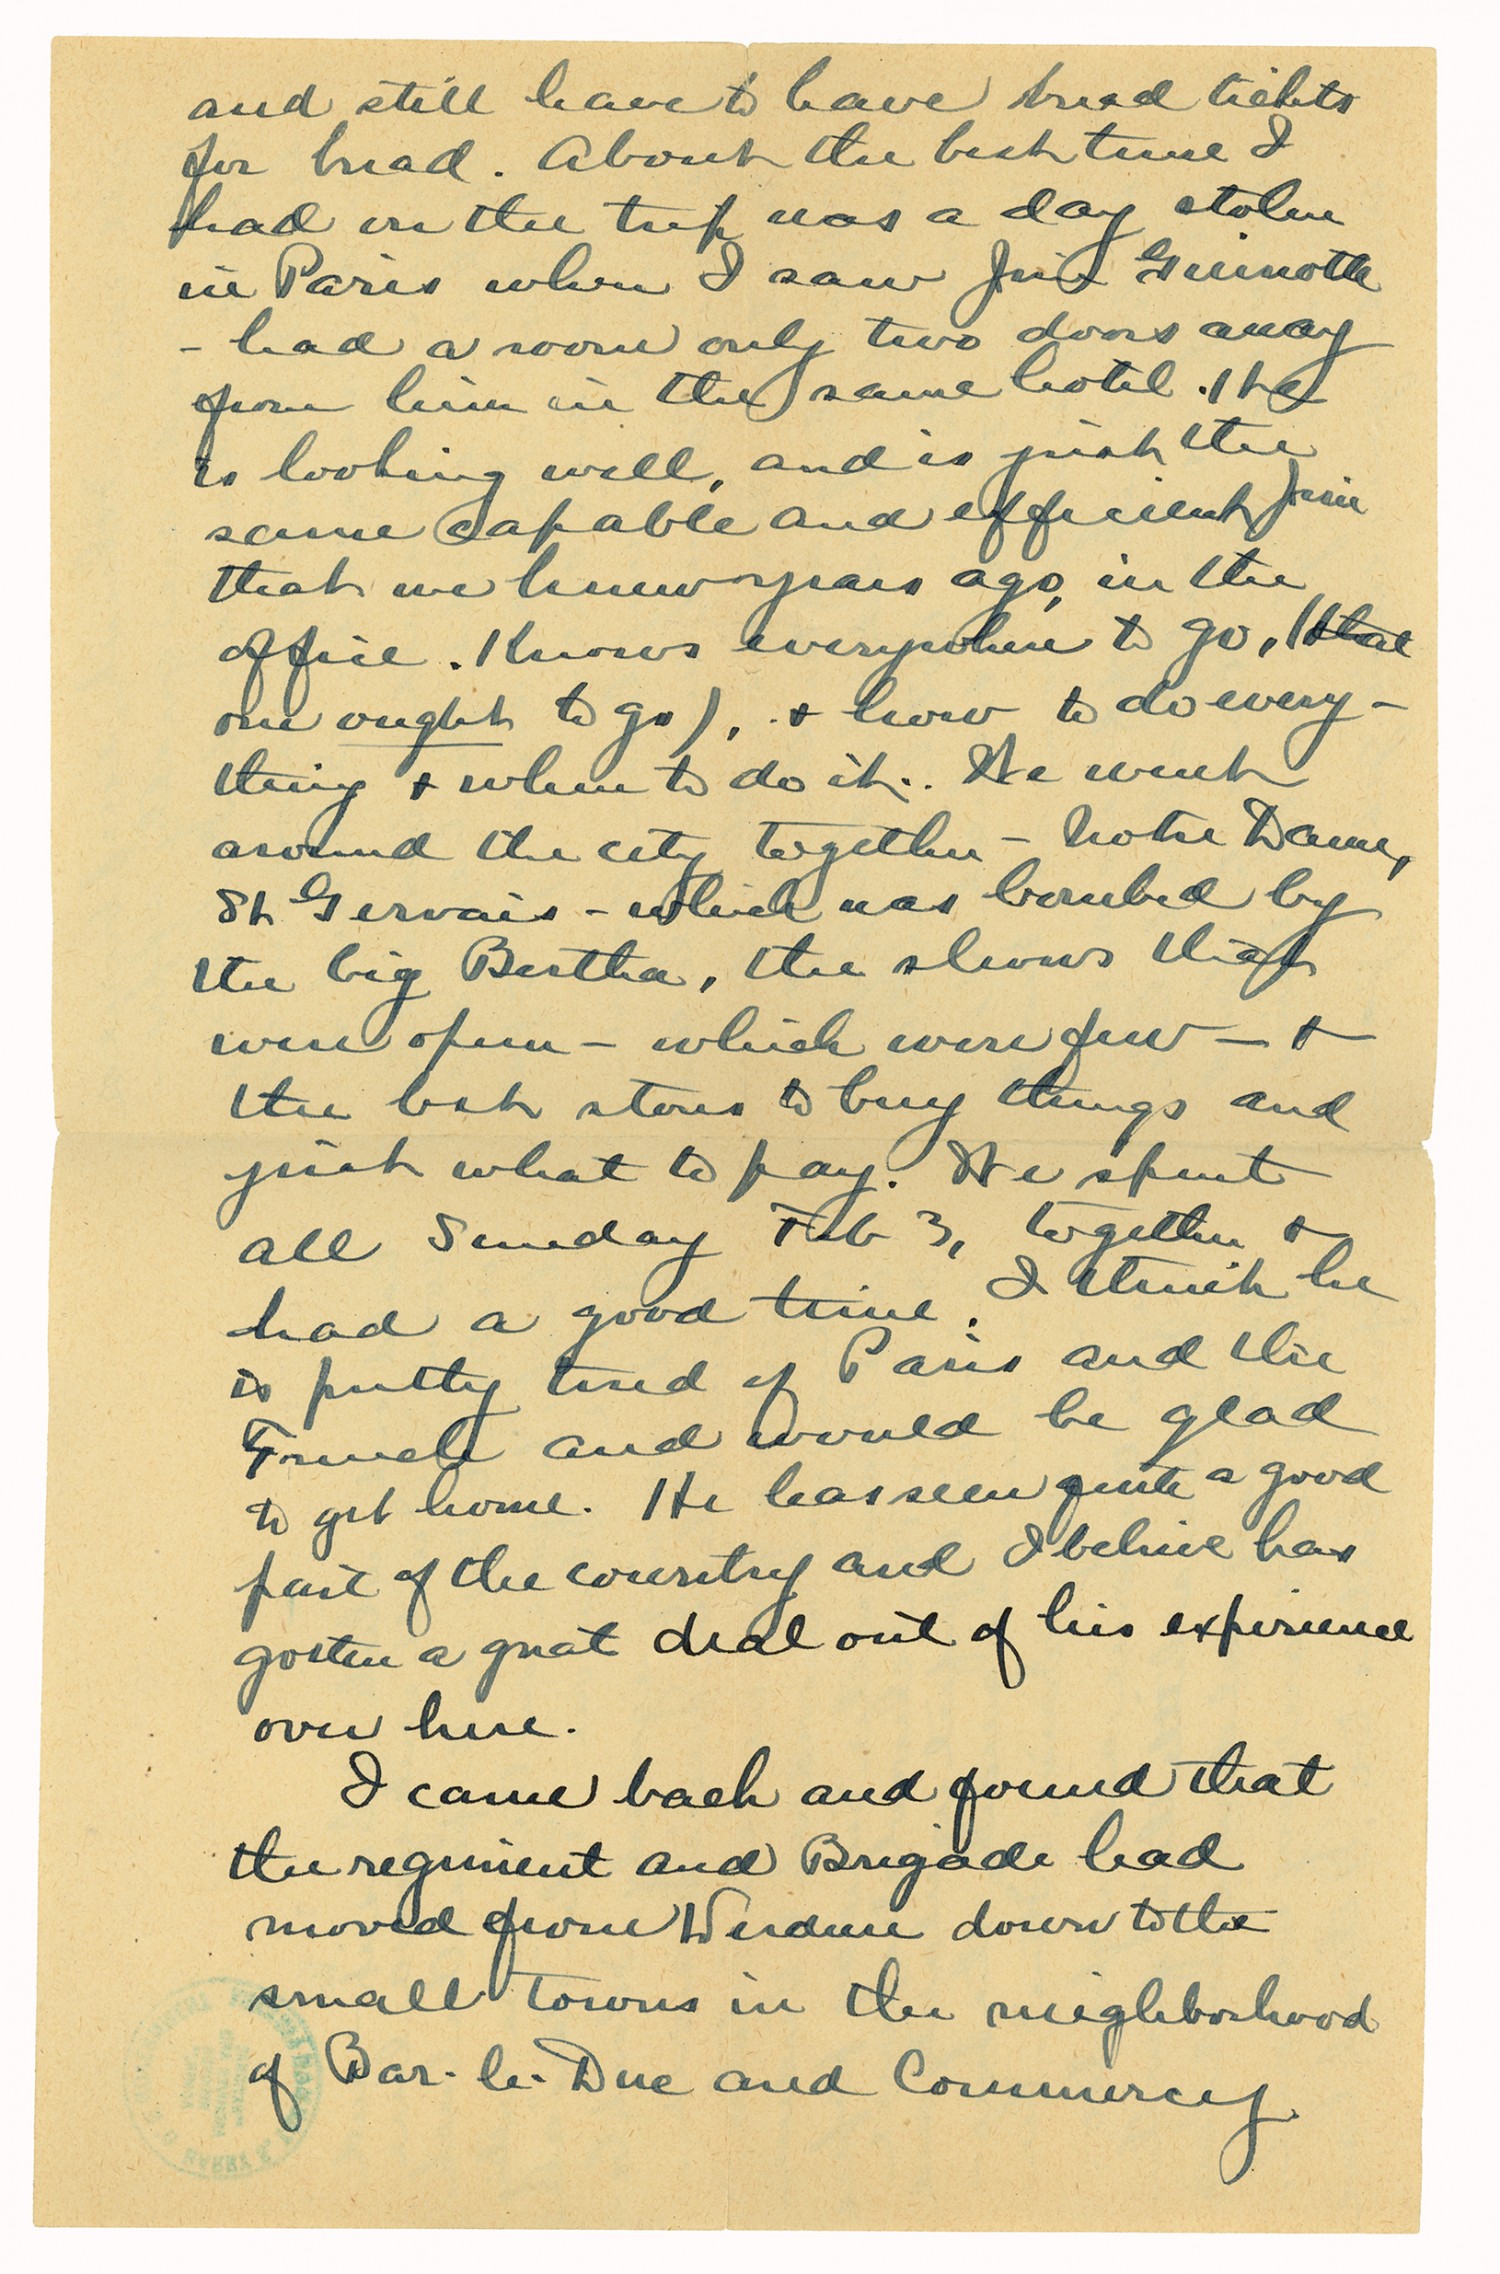 and still have to have bread tickets
for bread. About the best time I
had on the trip was a day stolen
in Paris when I saw Jim Guinotte
- had a room only two doors away
from him in the same hotel. He
is looking well, and is just the
same capable and efficient Jim
that we knew years ago, in the
office. Knows everywhere to go, (that
one ought to go), & how to do every-
thing & when to do it. We went
around the city together - Notre Dame,
St Gervais - which was bombed by
the big Bertha, the shows that
were open - which were few - &
the best stores to buy things and
just what to pay. We spent
all Sunday Feb 3, together &
had a good time. I think he
is pretty tired of Paris and the
French and would be glad
to get home. He has seen quite a good
part of the country and I believe has
gotten a great deal out of his experience
over here.
I came back and found that
the regiment and Brigade had
moved from Verdun down to the
small towns in the neighborhood
of Bar-le-Duc and Commercy.